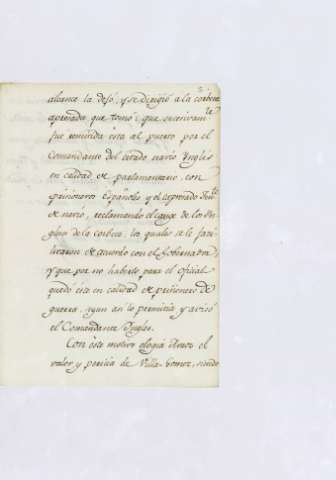 alcance la dejó, y se dirigió a la corbeta
apresada que tomó; que sucesivam.te
fue remitida ésta al puerto por el
Comandante del citado navio Ynglés
en calidad de parlamentario, con
prisioneros Españoles y el expresado Ten.te
de navio, reclamando el cange de los Yn-
gleses de la corbeta, los quales se le faci-
litaron de acuerdo con el Gobernador,
y que por no haberlo para el oficial
quedó éste en calidad de prisionero de
guerra, y aun así lo permitía y avisó
el Comandante Yngles.
Con este motivo elogia el
valor y pericia de Villa-Gomez, siendo